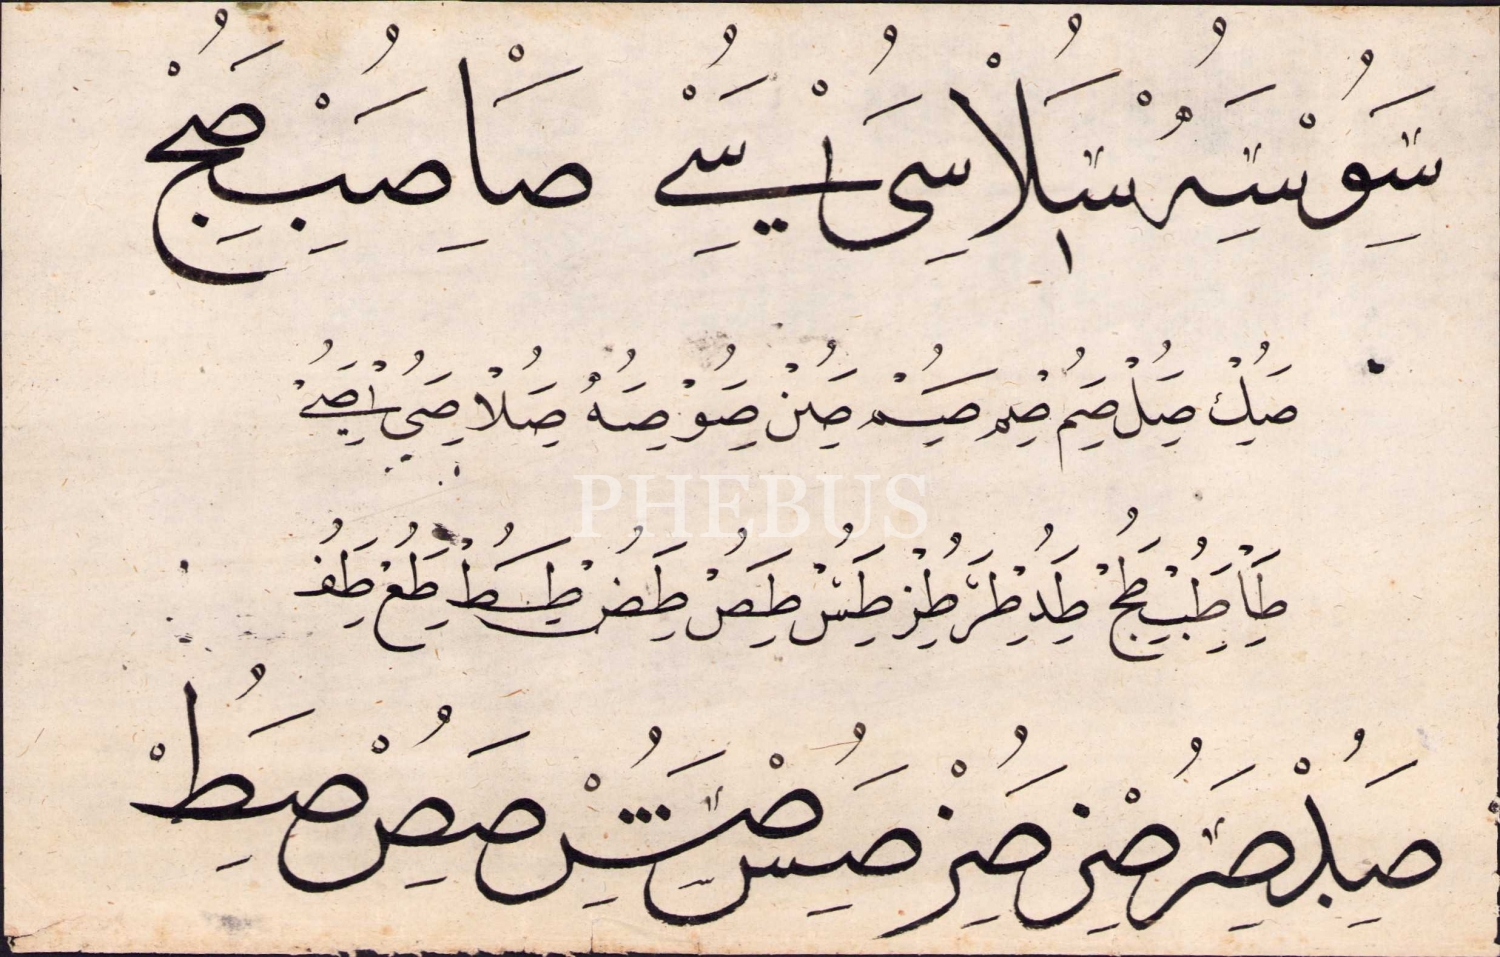 سَِوُْ سَِهُْ سَِلُاْ سَِىُْ سَِےُْ صَِاْ صَِبُْ صَِحُْ
صَِكُْ صَِلُْ صَِمُْ صَِمُْ صَِمُْ صَِنُْ صَِوُْ صَِهُْ صَِلُاْ صَِىُْ صَِےُْ
طَِاْ طَِبُْ طَِحُْ طَِدُْ طَِرُْ طَِزُْ طَِسُْ طَِصُْ طَِضُْ طَِطُْ طَِعُْ طَِفُْ
صَِدُْ صَِرُْ صَِزُْ صَِزُْ صَِسُْ صَِشُْ صَِصُْ صَِطُْ
PHEBUS